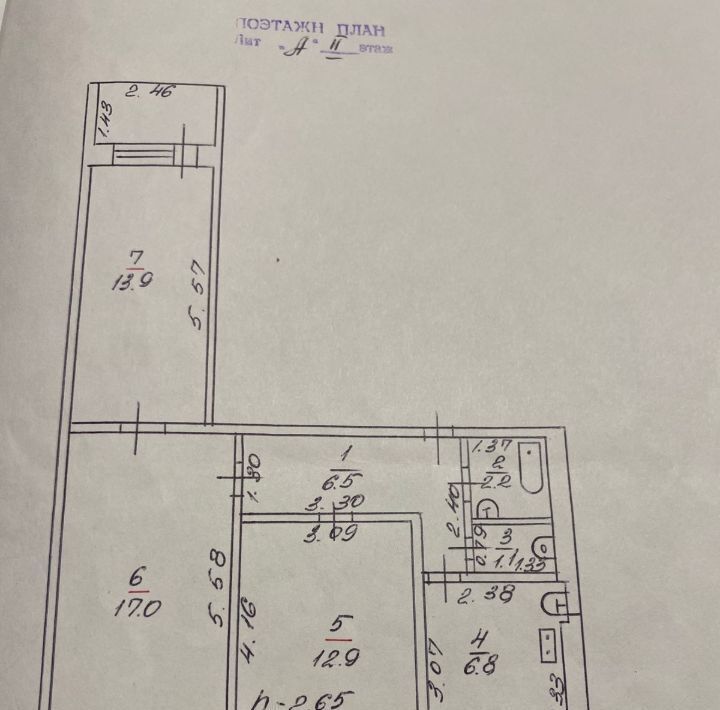 ПОЭТАЖН ПЛАН
Лит "А" II этаж
2.46
1.43
7
13.9
5.57
1
6.5
1.80
3.30
3.09
2.40
1.37
2
2.2
0.79
3
1.1
1.33
6
17.0
5.58
4.16
5
12.9
h-2.65
2.38
4
6.8
3.07
33